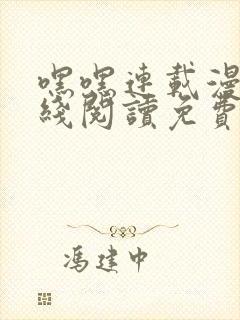 嘿嘿連載漫
綫閱讀免費
馮建中